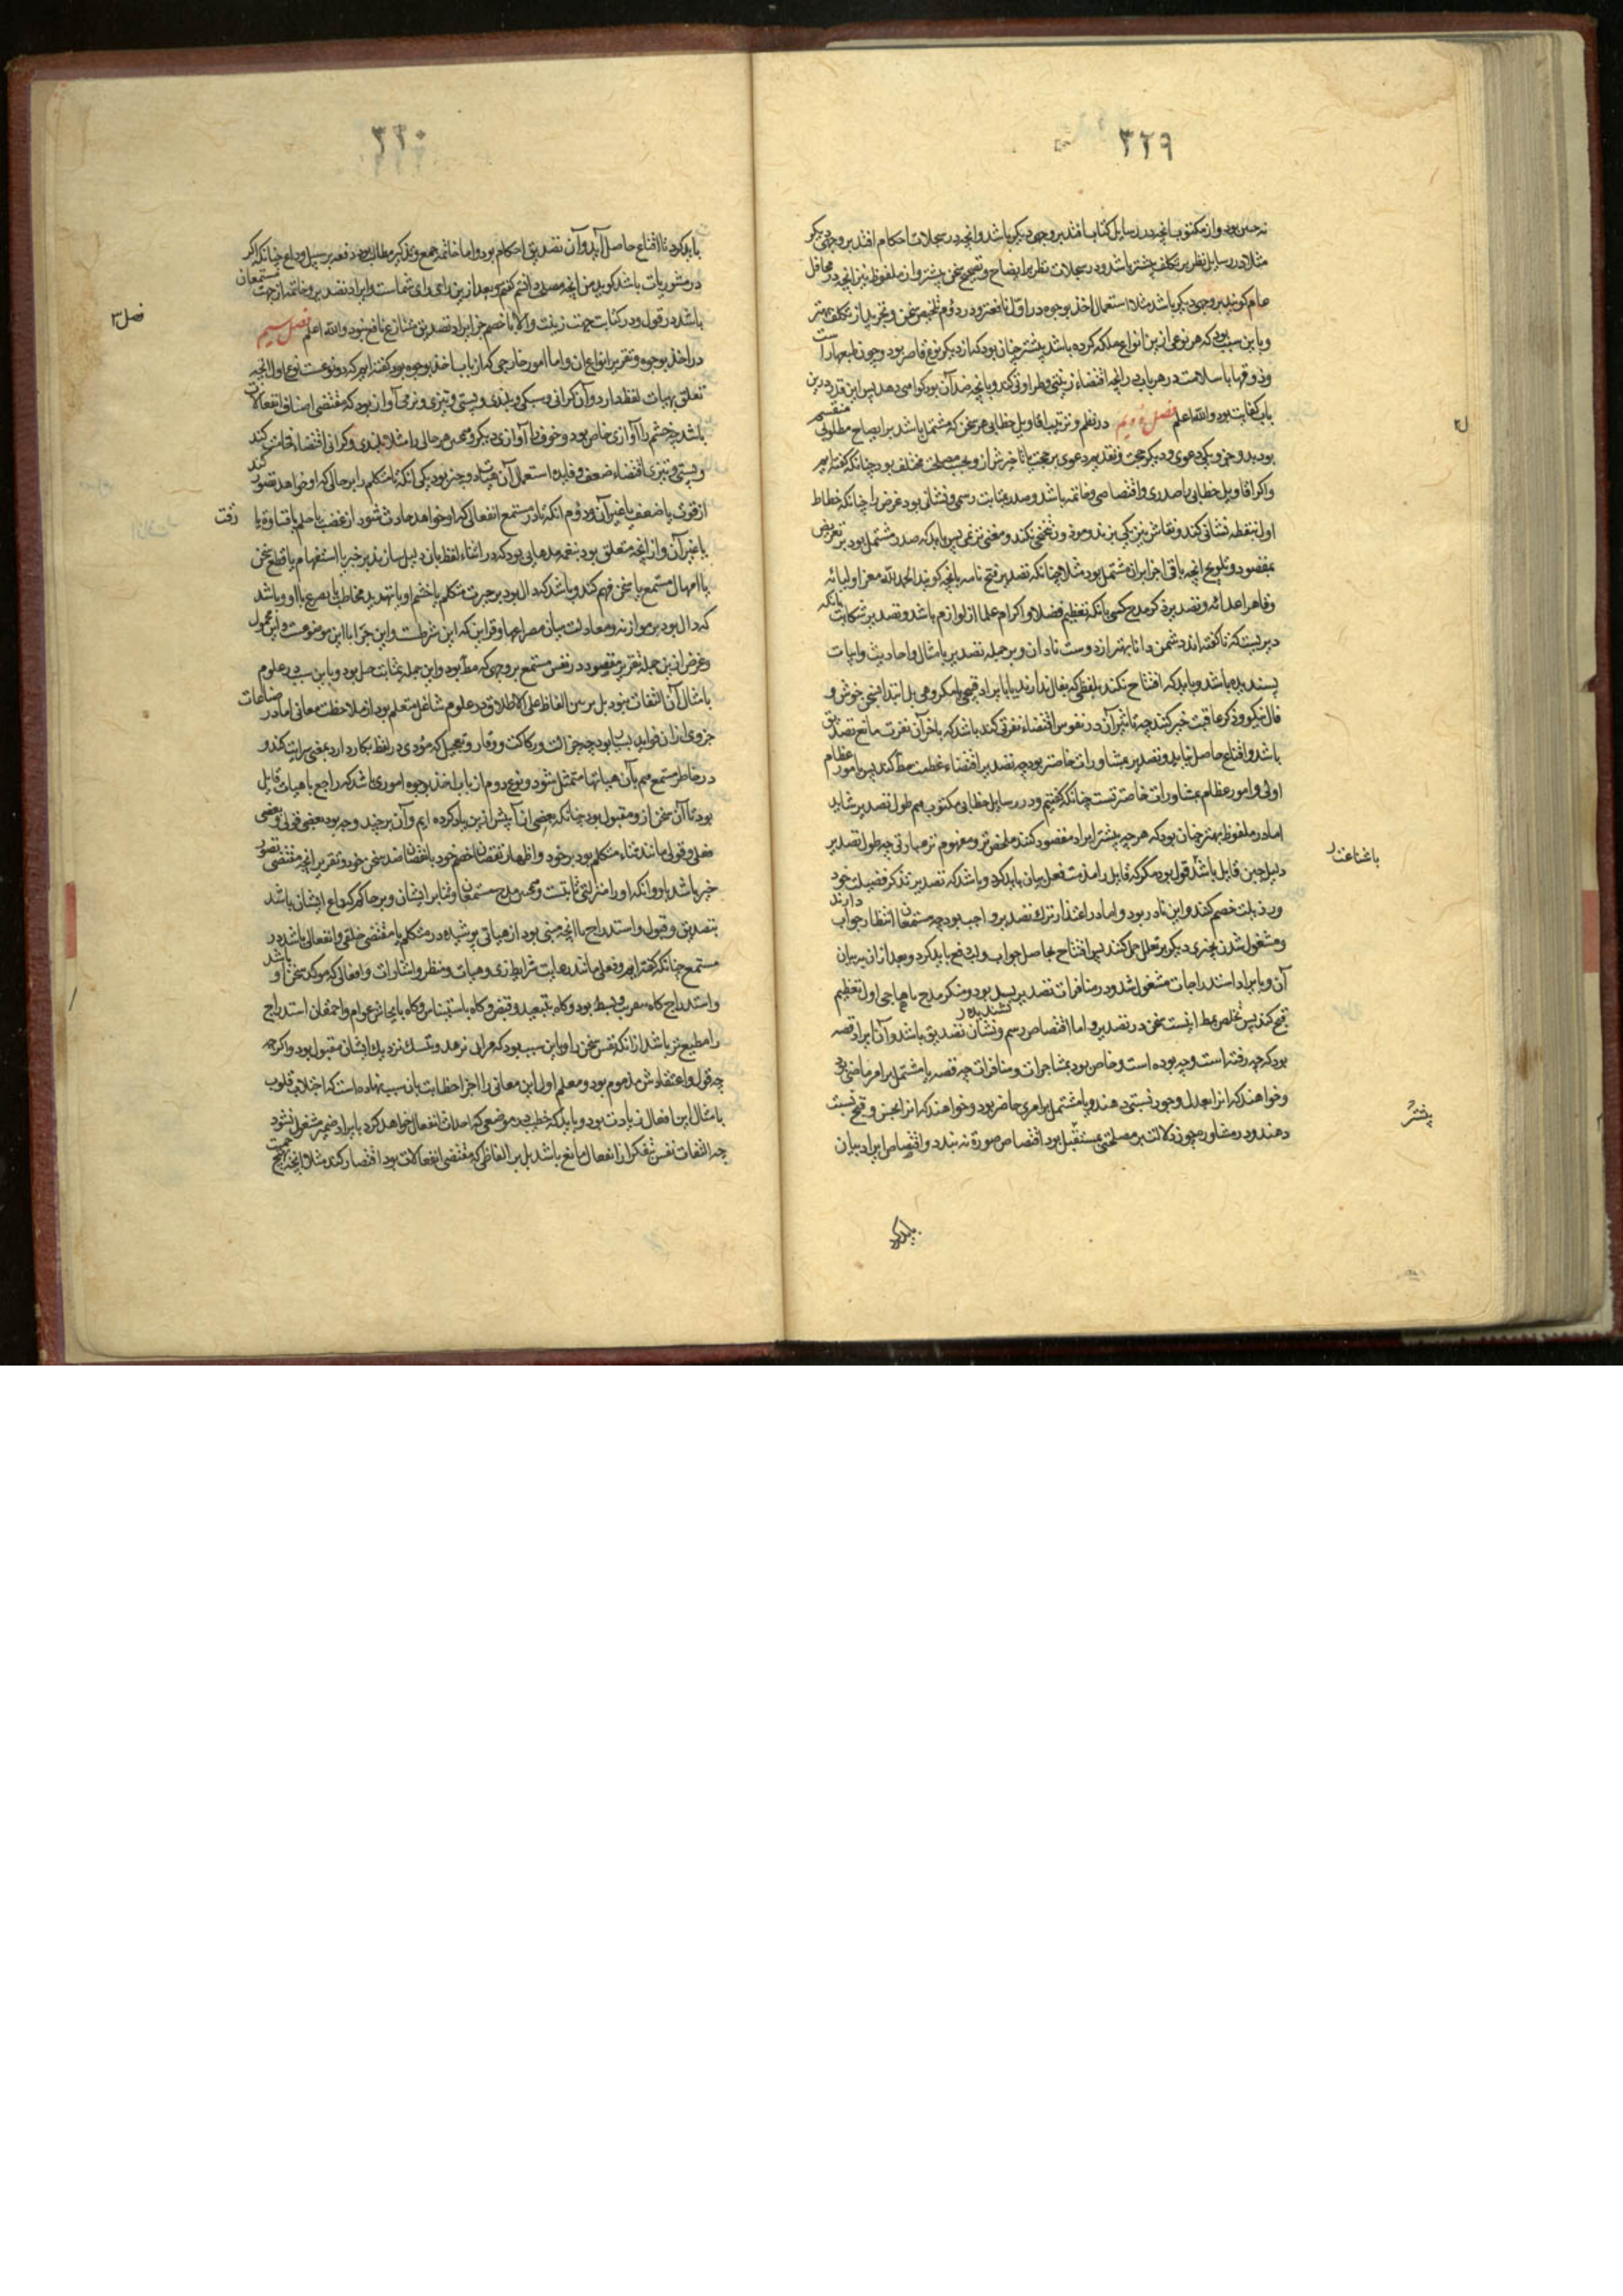 ۳۲۹
نه چنین بود و از مکتوب آنچه در رسایل کتاب افتد بر وجهی دیگر باشد و آنچه در سجلات احکام افتد بر وجهی دیگر
مثلا در رسایل نظر بر تکلف بیشتر باشد و در سجلات نظر بر ایضاح و تصحیح سخن بیشتر و از ملفوظ نیز آنچه در محافل
عام گویند بر وجهی دیگر باشد مثلا استعمال اخذ بوجوه در اول نافعتر و در دوم تلخیص سخن و تجرید از تکلف بهتر
و باین سبب بود که هر نوعی ازین انواع ملکه کرده باشد بیشتر چنان بود که از دیگر نوع قاصر بود و چون طبعها راست
و ذوقها با سلامت در هر بابی در آنچه اقتضاء زینتی و طراوتی کند و بآنچه ضد آن بود گواهی دهد پس این قدر درین
باب کفایت بود والله اعلم فصل دویم در نظم و ترتیب اقاویل خطابی هر سخن که مشتمل باشد بر ایضاح مطلوبی منقسم
بود بدو جزو یکی دعوی و دیگر حجت و تقدیم دعوی بر حجت یا تاخیرش ازو بحسب مصلحت مختلف بود چنانکه گفته ایم
و اکثر اقاویل خطابی را صدری و اقتصاصی و خاتمه باشد و صدر بمثابت رسمی و نشانی بود غرض را چنانکه خطاط
اول بنقطه نشانی کند و نقاش بنیرنگی بزند و موذن تنحنحی بکند و مغنی ترنمی پس باید که صدر مشتمل بود بر تعریض
بمقصود و تلویح آنچه باقی اجزا بران مشتمل بود مثلا چنانکه تصدیر فتح نامه بآنچه گویند الحمد لله معز اولیائه
و قاهر اعدائه و تصدیر ذکر مدح کسی بآنکه تعظیم فضلا و اکرام علما از لوازم باشد و تصدیر شکایت بآنکه
دیریست که تا گفته اند دشمن دانا بهتر از دوست نادان و بر جمله تصدیر بامثال و احادیث و ابیات
پسندیده باشد و باید که افتتاح نکند بلفظی که بفال ندارند یا بایراد قبیحی یا مکروهی بل ابتدا بچیزی خوش و
فال نیکو و ذکر عاقبت خیر کنند چه تاثیر آن در نفوس اقتضاء نفرتی کند باشد که باخر آن نفرت مانع تصدیق
باشد و اقناع حاصل نیاید و تصدیر بمشاورات خاصتر بود چه تصدیر اقتضاء عظمت خطر کند پس بامور عظام
اولی و امور عظام بمشاورات خاصترست چنانکه گفتیم و در رسایل خطابی مکتوب هم طول تصدیر شاید
اما در ملفوظ بهتر چنان بود که هر چه بیشتر ایراد مقصود کنند ملخص تر و مفهوم تر عبارتی چه طول تصدیر
دلیل جبن قایل باشد قول بود مگر که قایل را مذمت فعل بیان باید کرد و باشد که تصدیر بذکر فضیلت خود
و رذیلت خصم کنند و این نادر بود و اما در اعتذار ترک تصدیر واجب بود چه مستمعان انتظار جواب دارند
و مشغول شدن بچیزی دیگر بر تعلل حمل کنند پس افتتاح بحاصل جواب و لب دفع باید کرد و بعد ازان بر بیان
آن و بایراد استدراجات مشغول شد و در منافرات تصدیر پسندیده بود و منکر مدح یا هجا جی اول تعظیم
قبح کند پس تخلص بمط اینست سخن در تصدیر و اما اقتصاص رسم و نشان تصدیق باشد و آن ایراد قصه
بود که چه رفته است و چه بوده است و خاص بود بمشاجرات و منافرات چه قصه یا مشتمل بر امر ماضی بود
و خواهند که انرا بعدل و جور نسبتی دهند و یا مشتمل بر امری حاضر بود و خواهند که انرا بحسن و قبح نسبت
دهند و در مشاوره چون دلالت بر مصلحتی مستقبل بود اقتصاص صورة نه بندد و اقتصاص ایراد بیان
باید کرد
باشاعتد ر
۳۳۰
باید کرد تا اقناع حاصل آید و آن تصدیق احکام بود و اما خاتمه جمع و تذکیر مطالب بود دفعه بر سبیل وداع چنانکه اگر
در مشوریات باشد گوید من آنچه مصلحت دانستم گفتم و بعد ازین رای رای شماست و ایراد تصدیر و خاتمه از جهت مستمعان
باشد در قول و در کتابت جهت زینت والا با خصم جز ایراد تصدیق متنازع نافع نبود والله اعلم فصل سیم
در اخذ بوجوه و تقریر انواع ان و اما امور خارجی که از باب اخذ بوجوه بود گفته ایم که دو نوعست نوع اول انچه
تعلق بهیات لفظ دارد و آن گرانی و سبکی و بلندی و پستی و تیزی و نرمی آواز بود که مقتضی اصناف انفعالات
باشد چه خشم را آوازی خاص بود و خوف را آوازی دیگر و همچنین هر حالی را مثلا بلندی و گرانی اقتضاء فخامت کند
و پستی و تیزی اقتضاء ضعف و فایده استعمال آن هیئات دو چیز بود یکی آنکه تا متکلم را بر حالی که او خواهد تصور کند
از قوت یا ضعف یا غیر آن و دوم آنکه تا در مستمع انفعالی که او خواهد حادث شود از غضب یا حلم یا قساوة یا رقت
یا غیر آن و از انچه متعلق بود بنغمه مدهایی بود که در اثناء لفظ بان دلیل سازند بر خبر یا استفهام یا قطع سخن
یا امهال مستمع یا سخن فهم کند و باشد که دال بود بر حیرت متکلم یا خشم او یا تهدید مخاطب یا تضرع با او و باشد
که دال بود بر موازنه و معادلت میان مصراعها و قراین که این شرطست و این جزا یا این موضوعست و این محمول
و غرض ازین جمله تقریر مقصود در نفس مستمع بر وجهی که مطلوب بود و این جمله بمثابت حیل بود و باین سبب در علوم
بامثال آن التفات نبود بل بر نس الفاظ علی الاطلاق در علوم شاغل متعلم بود از ملاحظت معانی اما در صناعات
جزوی ازان فواید بسیار بود چه جزالت و رکاکت و وقار و تعجیل که مؤدی در لفظ بکار دارد بمعنی سرایت کند و
در خاطر مستمع هم بآن هیاتها متمثل شود و نوع دوم از باب اخذ بوجوه اموری باشد که راجع با هیات قایل
بود تا آن سخن ازو مقبول بود چنانکه بعضی ازان پیش ازین یاد کرده ایم و آن بر چند وجه بود بعضی قولی و بعضی
فعلی و قولی مانند ثناء متکلم بود بر خود و اظهار نقصان خصم خود یا نقصان ضد سخن خود و تقریر آنچه مقتضی تصور
خیر باشد باو و آنکه او را منزلتی ثابتست و همچنین مدح مستمعان و ثنا بر ایشان و بر حاکم که داعی ایشان باشد
بتصدیق و قبول و استدراج با انچه مبنی بود از هیاتی پوشیده در متکلم یا مقتضی خلقی و انفعالی باشد در
مستمع چنانکه گفته ایم و فعلی مانند رعایت شرایط زی و هیات و منظر و اشارات و افعالی که موکد سخن او باشد
و استدراج گاه بتقریب و بسط بود و گاه بتبعید و قبض و گاه باستیناس و گاه بایحاش عوام و احمقان استدراج
را مطیع تر باشد ازانکه نفس سخن را و باین سبب بود که مرائی بزهد و تنسک نزدیک ایشان مقبول بود و اگر چه
چه قول و اعتقادش مذموم بود و معلم اول این معانی را اجزا خطابت بان سبب نهاده است که اجتلاب قلوب
بامثال این افعال زیادت بود و باید که خطیب در موضعی که احداث انفعال خواهد کرد بایراد ضمیر مشغول نشود
چه التفات نفس بتفکر از انفعال مانع باشد بل بر الفاظی که مقتضی انفعالات بود اقتصار کند مثلا انچه تهییج
فصل ۳